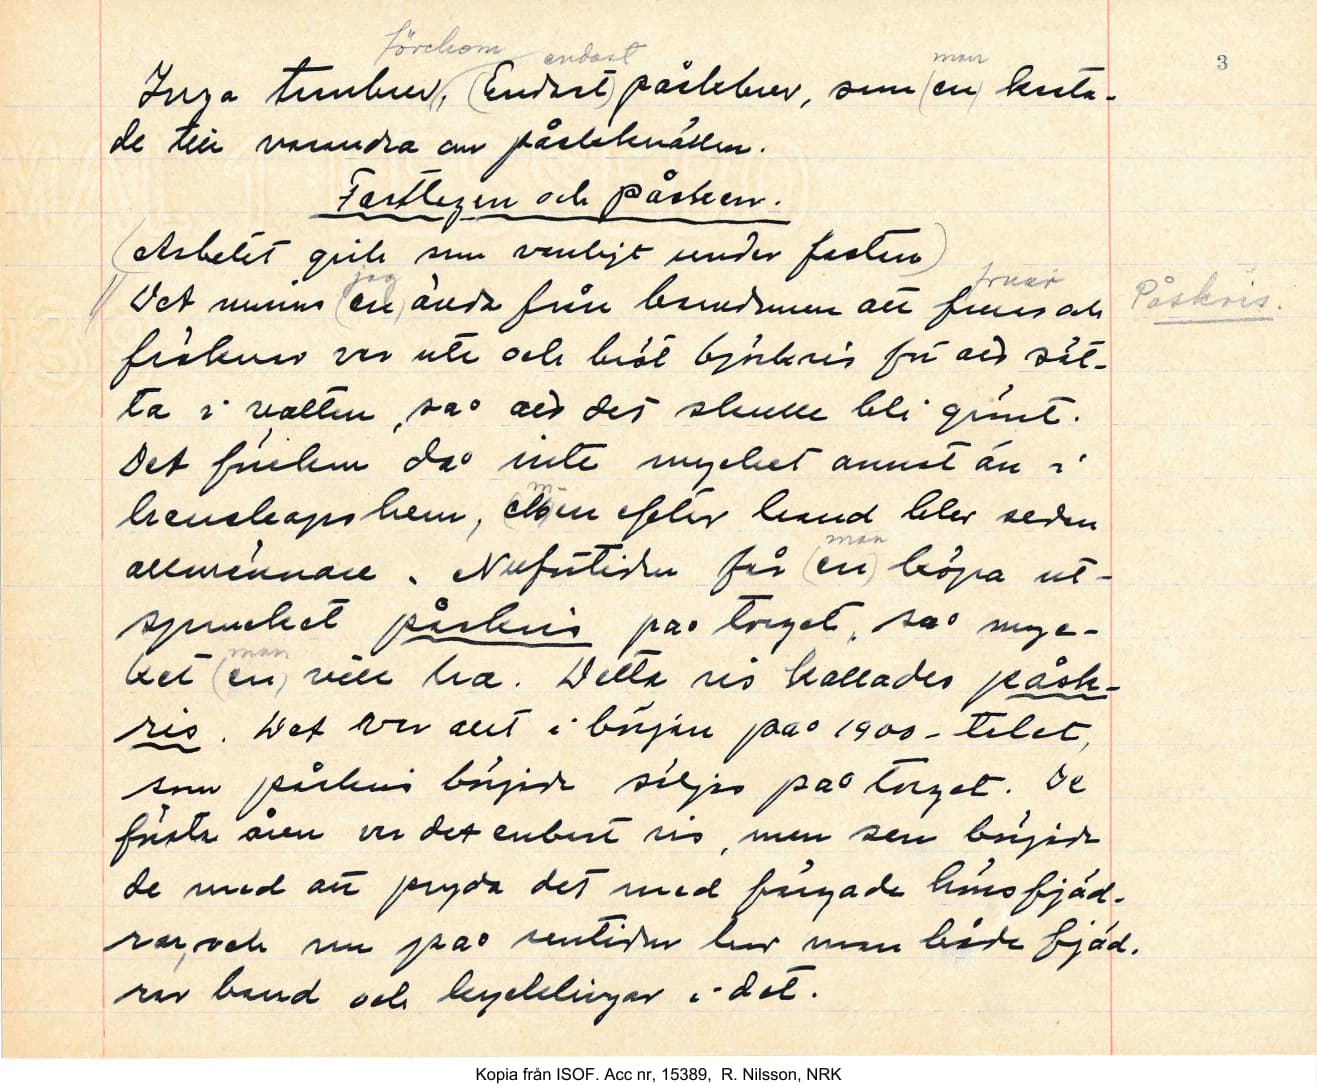 förekom endast man 3
Inga trunbrev, (Endast) påskbrev, som (en) kasta-
de till varandra om påskkvällen.
Fastlagen och påsken.
(Arbetet gick som vanligt under fasten)
jag fruar Påskris.
Det minns (en) ända från barndomen att fruas och
fröknar var ute och bröt björkris för att sät-
ta i vatten, så att det skulle bli grönt.
Det förekom då inte mycket annat än i
herrskapshem, (Men efter hand blev seden
m-
man
allmännare. Nuförtiden får (en) köpa ut-
sprucket påskris på torget, så myc-
man
ket (en) vill ha. Detta ris kallades påsk-
ris. Det var allt i början på 1900-talet,
som påskris började säljas på torget. De
första åren var det enbart ris, men sen började
de med att pryda det med färgade hönsfjäd-
rar, och nu på sentiden har man både fjäd-
rar band och kycklingar i det.
Kopia från ISOF. Acc nr, 15389, R. Nilsson, NRK